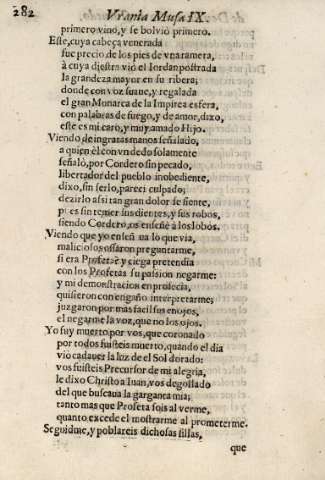 282
Vrania Musa IX.
primero vino, y se bolviò primero.
Este, cuya cabeça venerada
fue precio de los pies de vna ramera,
à cuya diestra viò el Iordan postrada
la grandeza mayor en su ribera;
donde con voz suaue, y regalada
el gran Monarca de la Impirea esfera,
con palabras de fuego, y de amor, dixo,
este es mi caro, y muy amado Hijo.
Viendo de ingratas manos señalado,
a quien èl con vn dedo solamente
señalò, por Cordero sin pecado,
libertador del pueblo inobediente,
dixo, sin serlo, pareci culpado;
dezirlo assi tan gran dolor se siente,
pues sin temer sus dientes, y sus robos,
siendo Cordero, os enseñè à los lobos.
Viendo que yo enseñaua lo que via,
maliciosos ossaron preguntarme,
si era Profeta? y ciega pretendia
con los Profetas su passion negarme:
y mi demostracion en profecia,
quisieron con engaño interpretarme;
juzgaron por mas facil sus enojos,
el negarme la voz, que no los ojos.
Yo fuy muerto por vos, que coronado
por todos fuisteis muerto, quando el dia
viò cadauer la luz de el Sol dorado:
vos fuisteis Precursor de mi alegria,
le dixo Christo a Iuan, vos degollado
del que buscaua la garganta mia;
tanto mas que Profeta sois al verme,
quanto excede el mostrarme al prometerme.
Seguidme, y poblareis dichosas sillas,
que